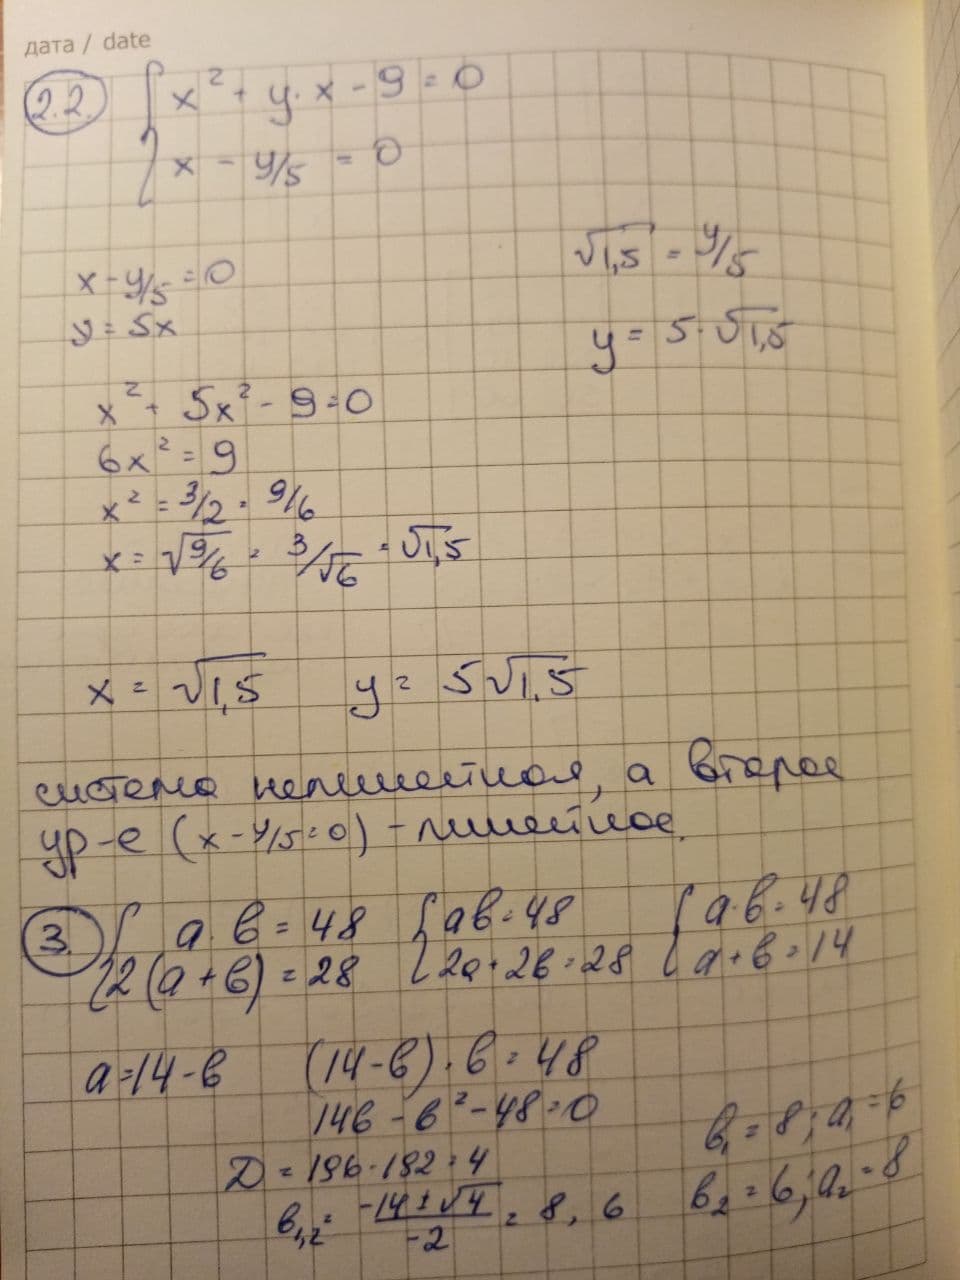 дата / date
2.2. { x² + y · x - 9 = 0
x - y/5 = 0
x - y/5 = 0
y = 5x
x² + 5x² - 9 = 0
6x² = 9
x² = 3/2 = 9/6
x = √9/6 = 3/√6 = √1,5
√1,5 = y/5
y = 5 · √1,5
x = √1,5 y = 5√1,5
система нелинейная, а второе
ур-е (x - y/5 = 0) - линейное.
3. { a · b = 48 { ab = 48 { a · b = 48
2(a + b) = 28 2a + 2b = 28 a + b = 14
a = 14 - b (14 - b) · b = 48
14b - b² - 48 = 0
D = 196 - 192 = 4
b₁,₂ = -14 ± √4 / -2 = 8, 6
b₁ = 8; a₁ = 6
b₂ = 6; a₂ = 8